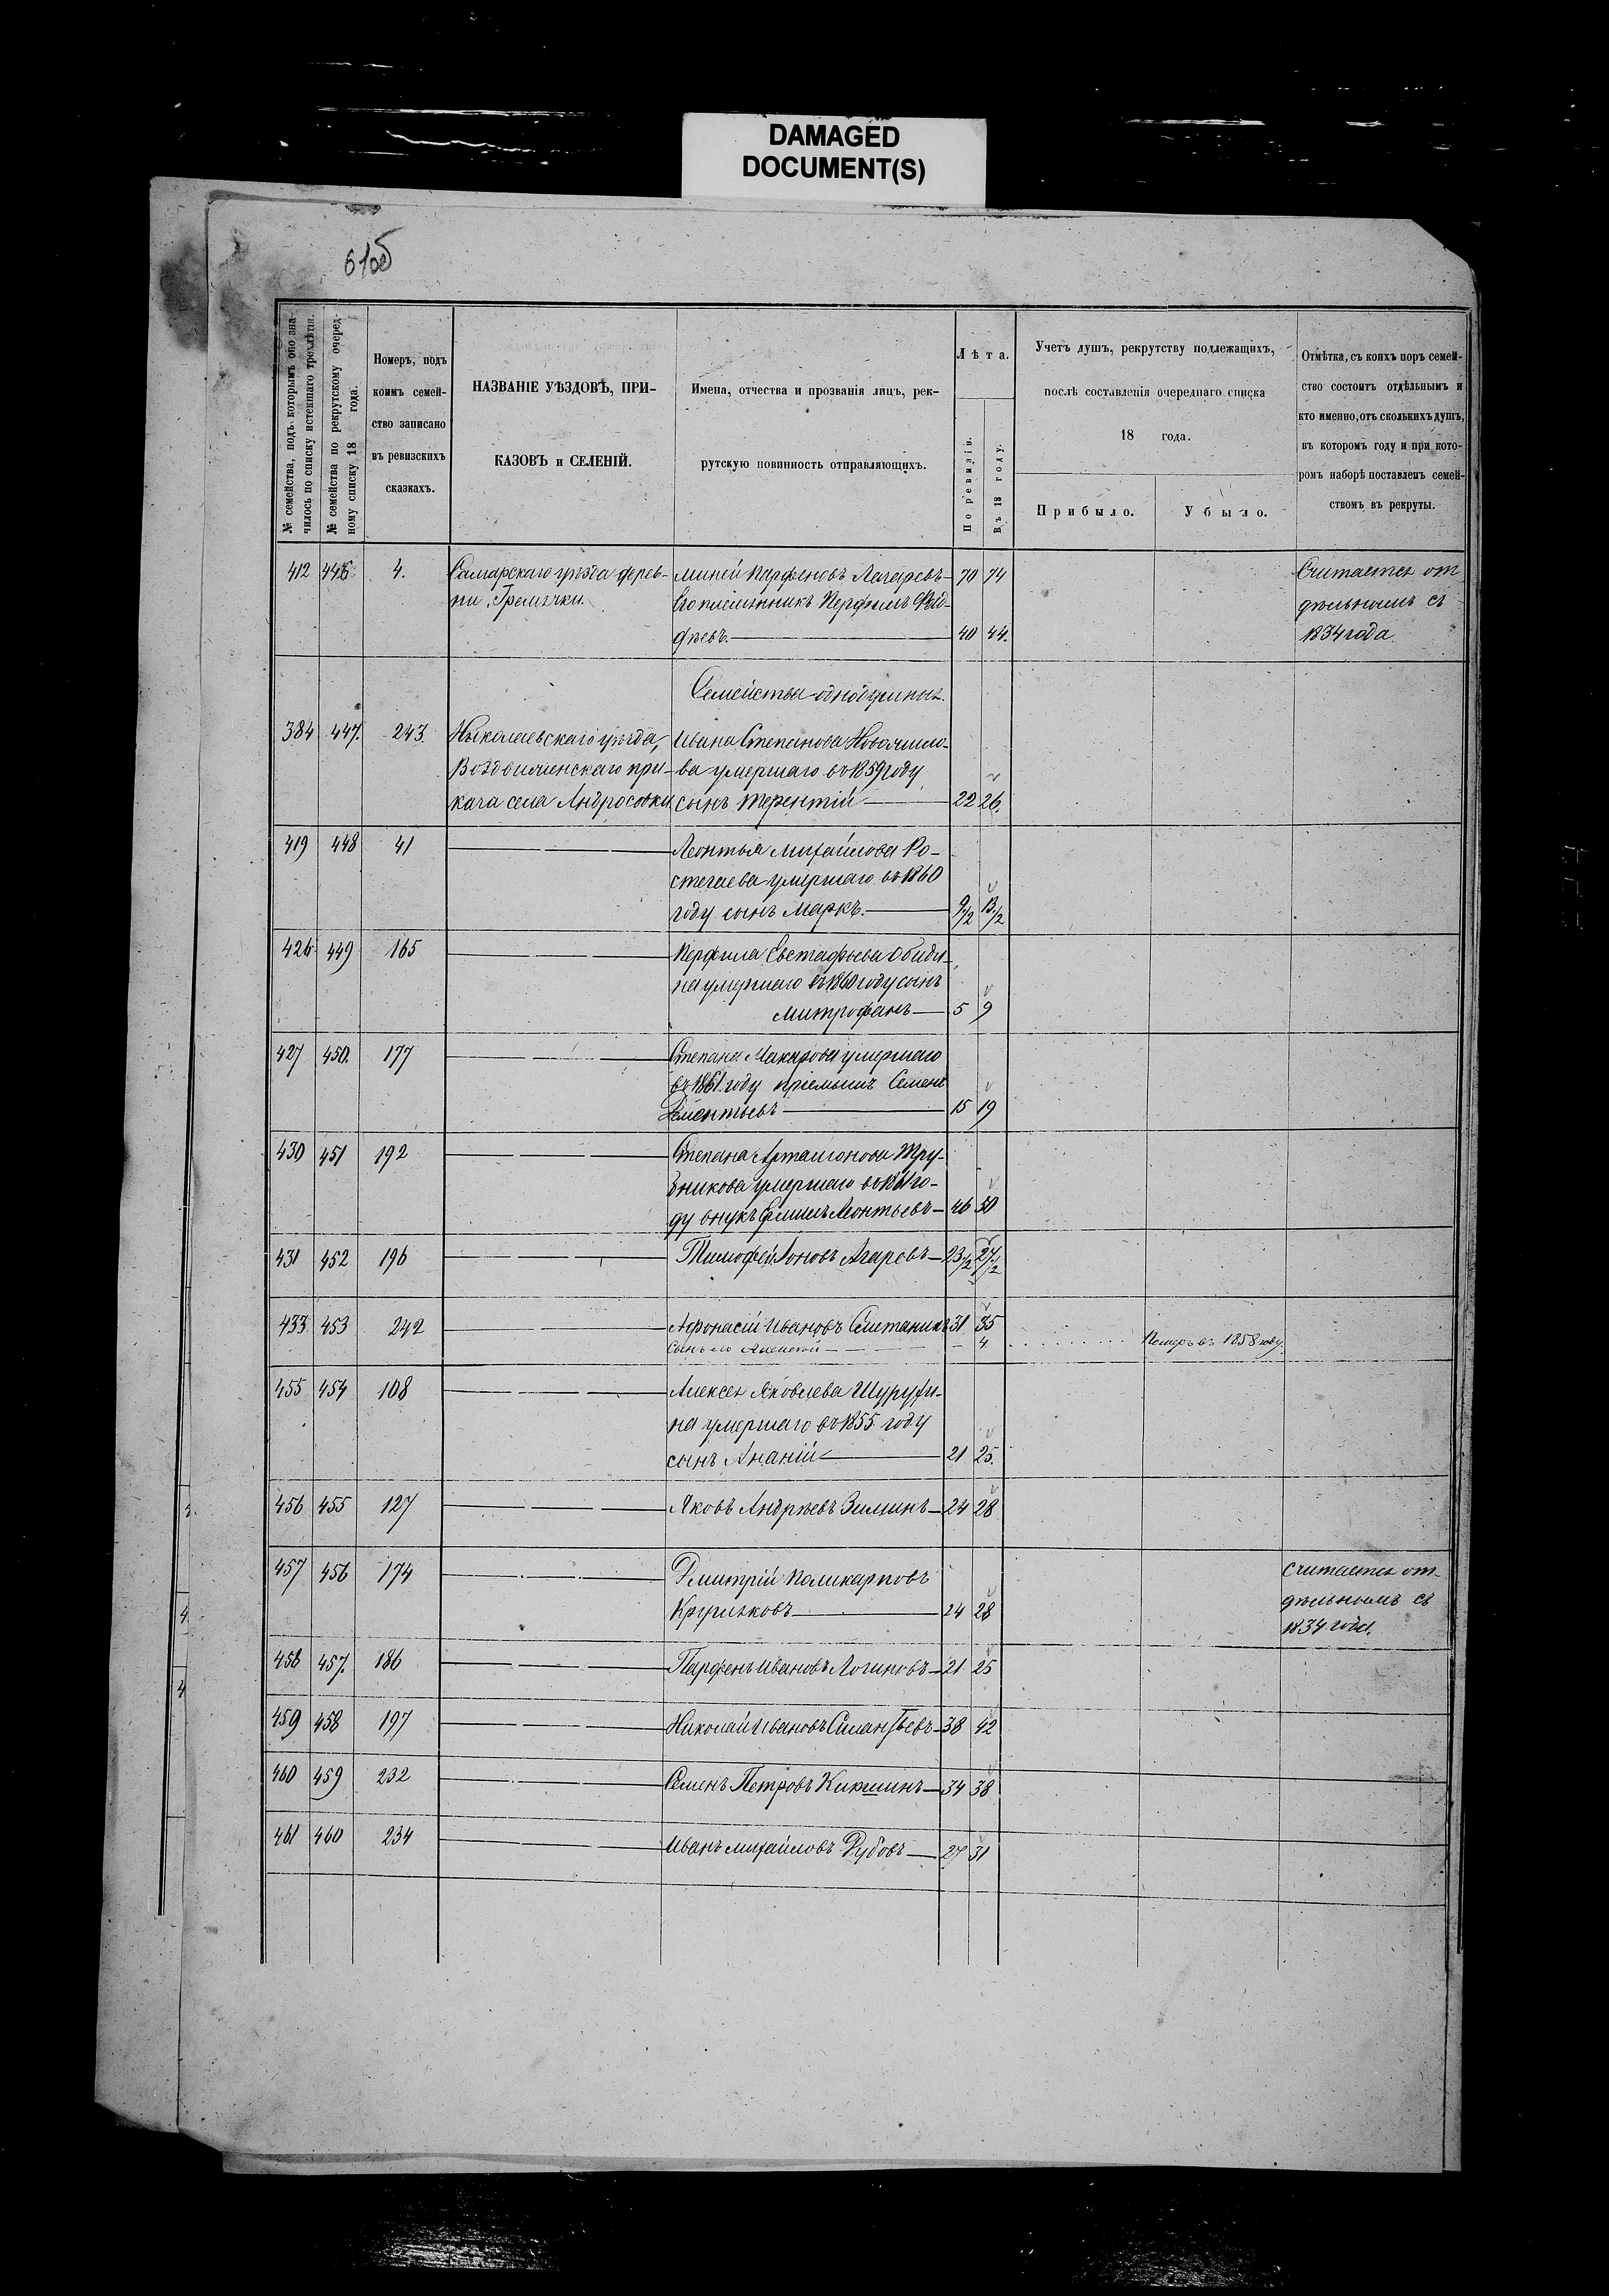 DAMAGED
DOCUMENT(S)
№ семейства, подъ которымъ оно зна-
чилось по списку истекшаго трехлѣтія.
№ семейства по рекрутскому очеред-
ному списку 18 года.
Номеръ, подъ
коимъ семей-
ство записано
въ ревизскихъ
сказкахъ.
НАЗВАНІЕ УѢЗДОВЪ, ПРИ-
КАЗОВЪ и СЕЛЕНІЙ.
Имена, отчества и прозванія лицъ, рек-
рутскую повинность отправляющихъ.
Лѣта.
По ревизіи.
Въ 18 году.
Учетъ душъ, рекрутству подлежащихъ,
послѣ составленія очереднаго списка
18 года.
Прибыло.
Убыло.
Отмѣтка, съ коихъ поръ семей-
ство состоитъ отдѣльнымъ и
кто именно, отъ сколькихъ душъ,
въ которомъ году и при кото-
ромъ наборѣ поставленъ семей-
ствомъ въ рекруты.
412 446 4. Самарскаго уѣзда дерев- Миней Парфеновъ 70 74 Считается от
ни Гремячки. Его племянникъ Перфилъ дѣльнымъ съ
40 44. 1834 года
Семейства однодушныя.
384 447. 243. Николаевскаго уѣзда, Ивана Степанова
Воздвиженскаго при- ва умершаго въ 1859 году
каза села Андросовки сынъ Терентій 22 26.
419 448 41 Леонтья Михайлова Ро-
стегаева умершаго въ 1860
году сынъ Маркъ. 9 1/2 13 1/2
426 449 165 Перфила Евстафьева Обиди-
на умершаго въ 1860 году сынъ
Митрофанъ 5 9
427 450. 177 Степана Макарова умершаго
въ 1861 году пріемышъ Семенъ
15 19
430 451 192 Степана Артамонова Тру-
бникова умершаго въ го-
ду внукъ Леонтьевъ 46 50
431 452 196 Тимофей Агаревъ 23 1/2 27 1/2
433 453 242 Афонасій Ивановъ Сметанинъ 31 35
Сынъ его Алексей — 4 Померъ въ 1858 году
455 454 108 Алексея Яковлева
на умершаго въ 1855 году
сынъ Ананій 21 25.
456 455 127 Яковъ Андрѣевъ Зиминъ 24 28
457 456 174 Дмитрій Поликарповъ Считается от-
Кругляковъ 24 28 дѣльнымъ съ
1834 года.
458 457. 186 Парфенъ Ивановъ Логиновъ 21 25
459 458 197 Николай Ивановъ Силантьевъ 38 42
460 459 232 Семенъ Петровъ Кикшинъ 34 38
461 460 234 Иванъ Михайловъ Дубовъ 27 31